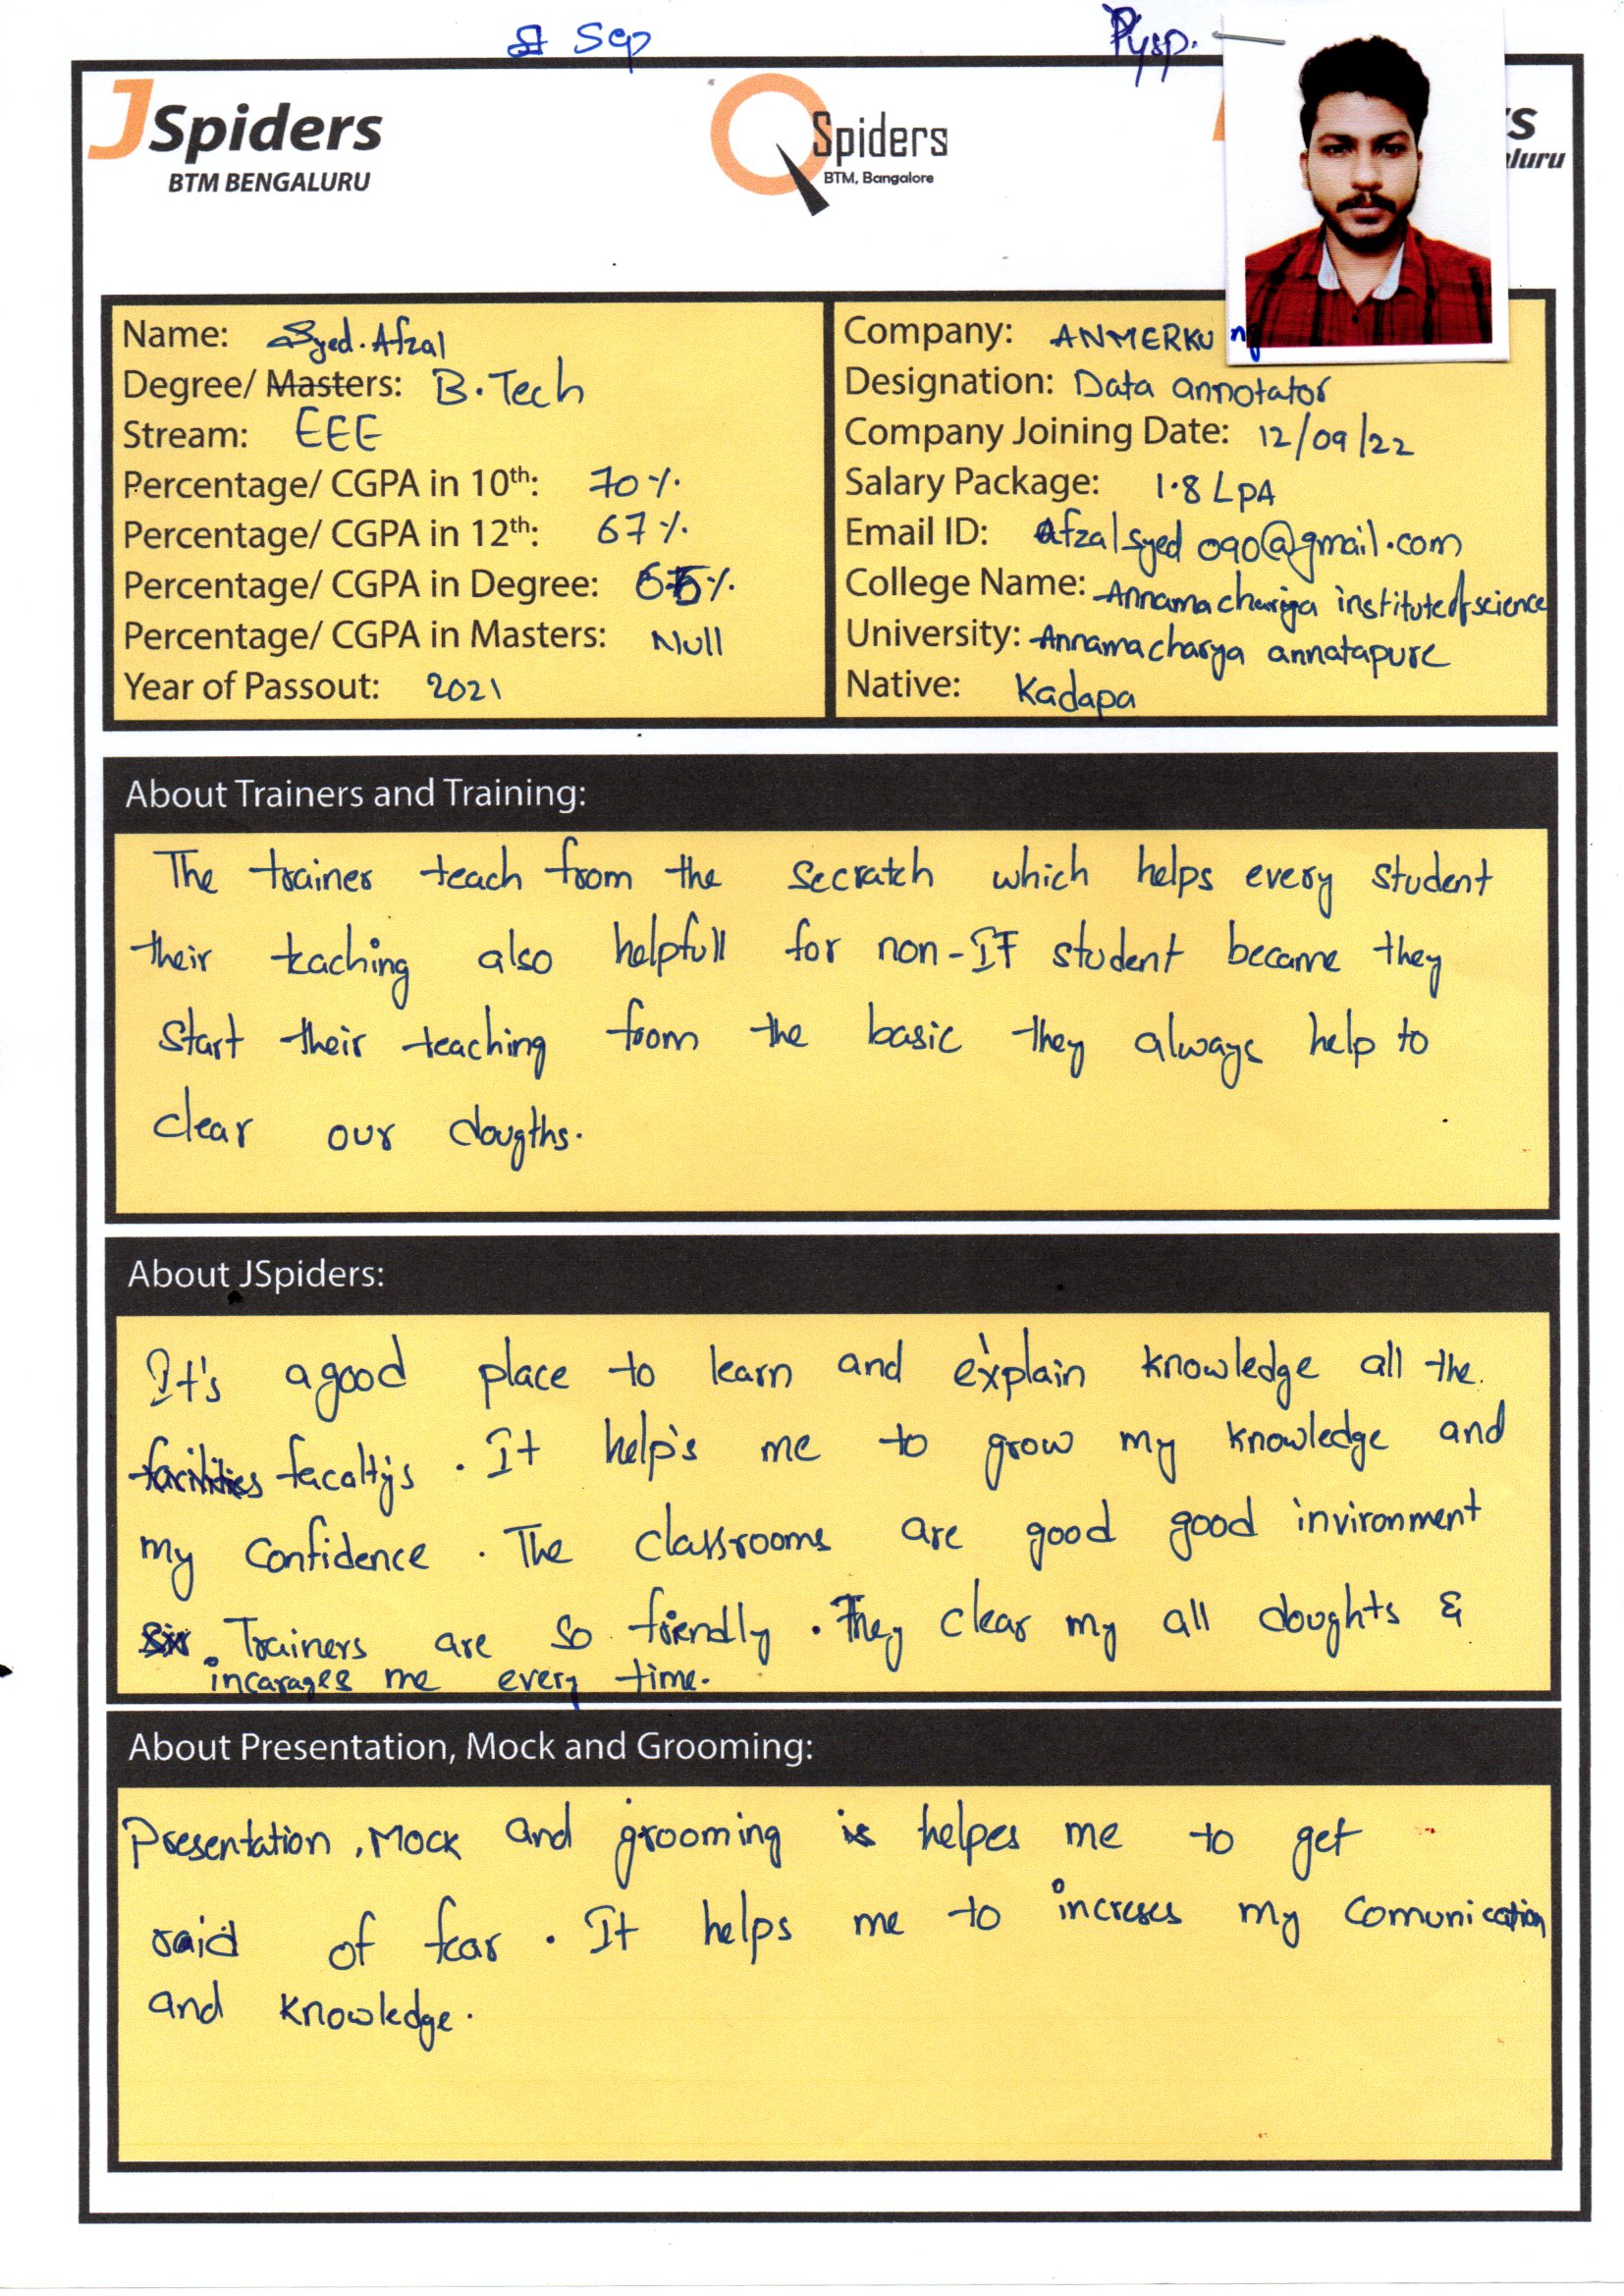 Sep
Pysp.
JSpiders
BTM BENGALURU
QSpiders
BTM, Bangalore
Name: Syed. Afzal
Degree/ Masters: B.Tech
Stream: EEE
Percentage/ CGPA in 10th: 70%.
Percentage/ CGPA in 12th: 67%.
Percentage/ CGPA in Degree:
Percentage/ CGPA in Masters: Null
Year of Passout: 2021
Company: ANMERKUng
Designation: Data annotator
Company Joining Date: 12/09/22
Salary Package: 1.8 LPA
Email ID: afzalsyed090@gmail.com
College Name: Annamachariya institute of science
University: Annamacharya annatapure
Native: Kadapa
About Trainers and Training:
The trainer teach from the secratch which helps every student
their teaching also helpfull for non-IT student became they
start their teaching from the basic they always help to
clear our dougths.
About JSpiders:
It's a good place to learn and explain knowledge all the.
facilities facalty's. It help's me to grow my knowledge and
my Confidence. The classrooms are good good invironment
Trainers are so friendly. They clear my all doughts &
incarages me every time.
About Presentation, Mock and Grooming:
Presentation, Mock and grooming is helpes me to get
raid of fear. It helps me to increses my Comunication
and knowledge.